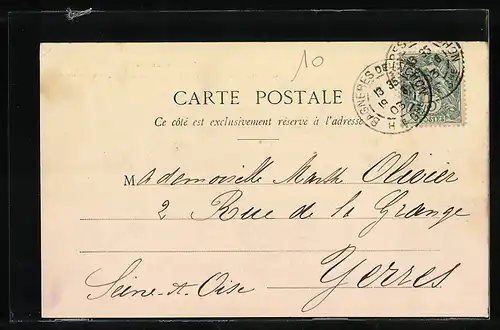 10
CARTE POSTALE
Ce côté est exclusivement réservé à l'adresse
BAGNERES DE LUCHON
Mademoiselle Marth Olivier
2 Rue de la Grange
Yerres
Seine-et-Oise